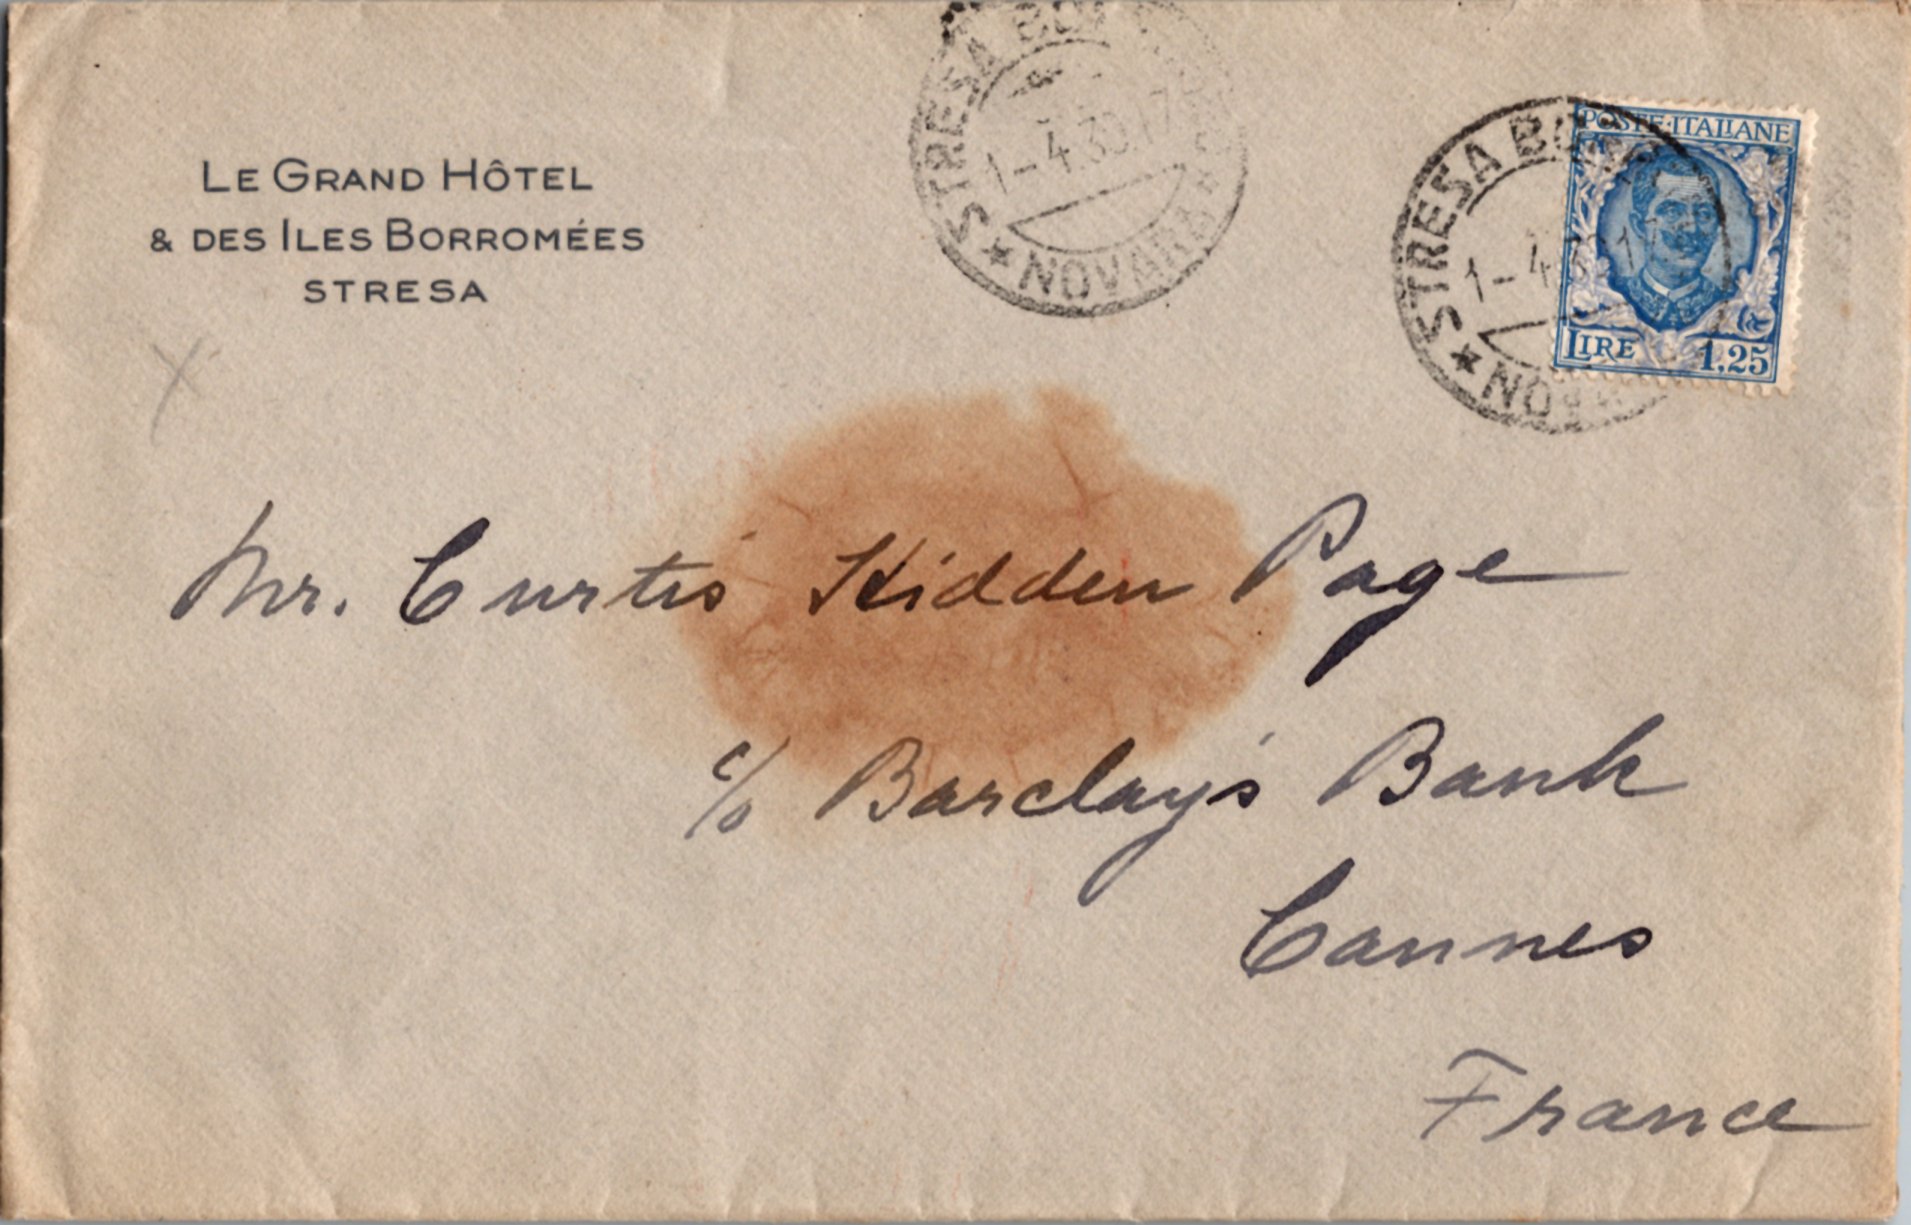 LE GRAND HÔTEL
& DES ILES BORROMÉES
STRESA
STRESA
1-4.30.17
* NOVARA *
STRESA
1-4
*
POSTE·ITALIANE
LIRE 1,25
Mr. Curtis Hidden Page
c/o Barclay's Bank
Cannes
France